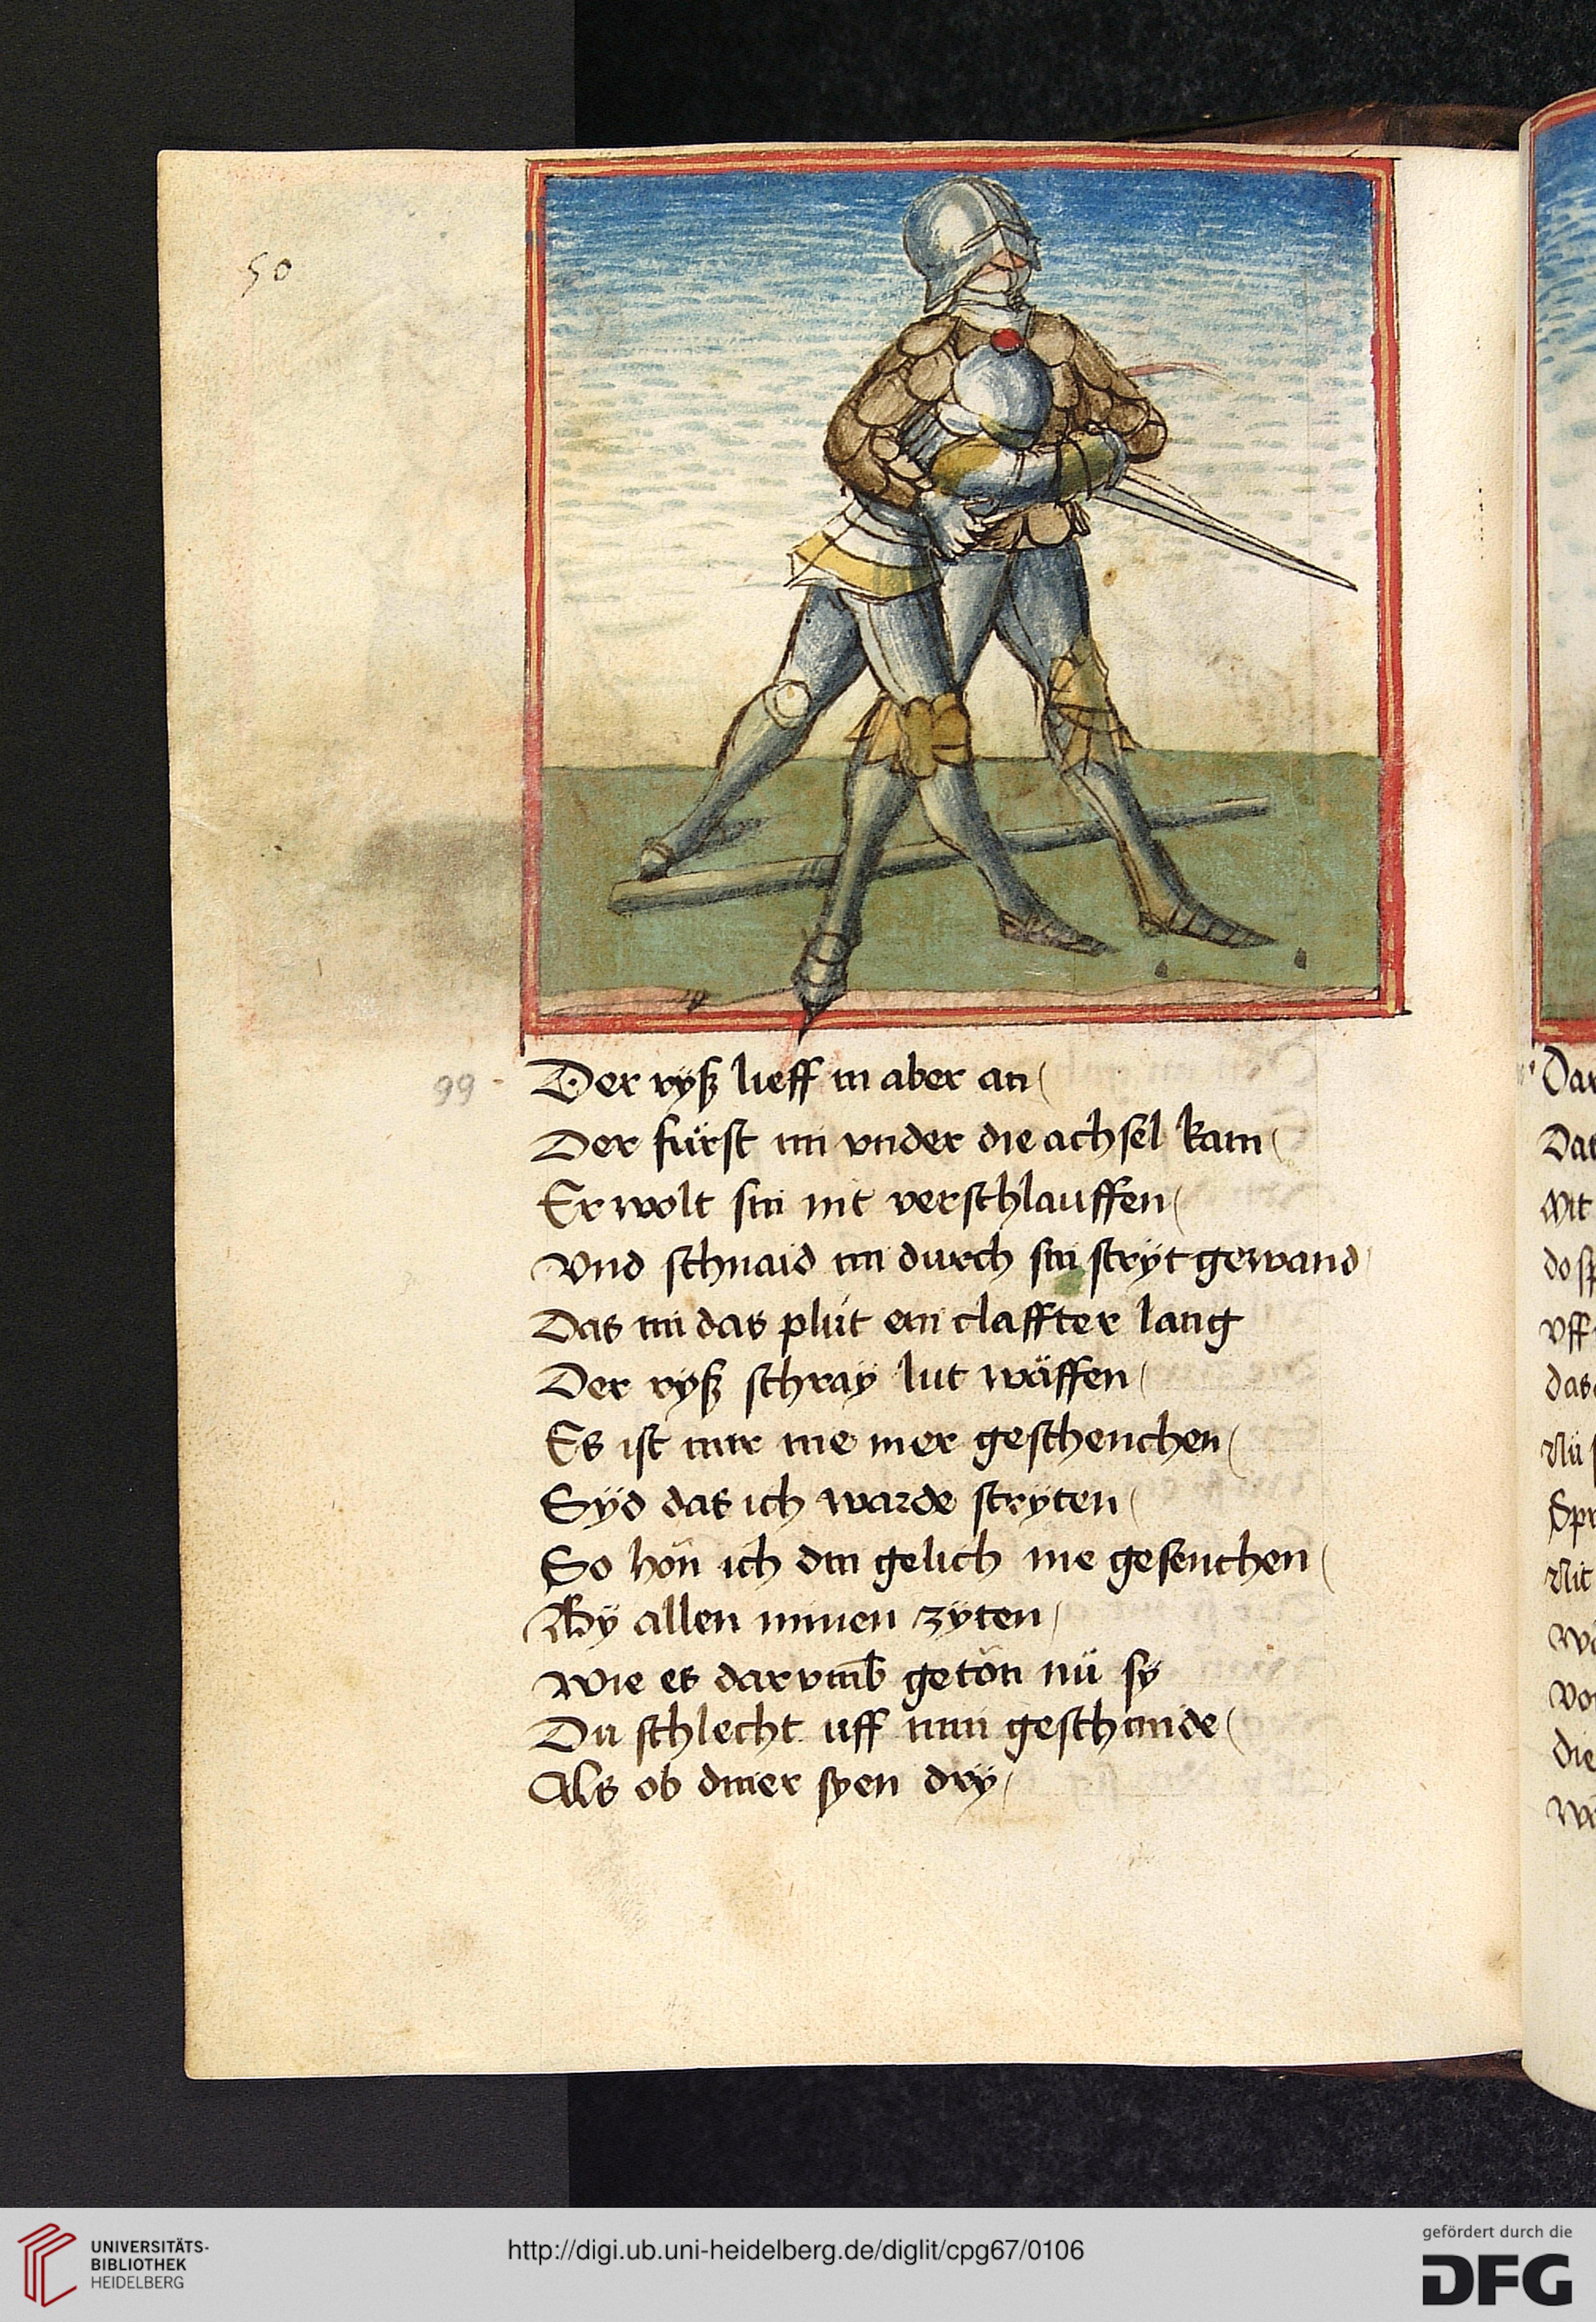 50
99
Der ryß lieff in aber an
Der fürst im vnder die achsel kam
Er wolt sin nit verschlauffen
Vnd schnaid im durch sin strÿt gewand
Das im das plůt ein claffter lang
Der ryß schray lut wäffen
Es ist mir nie mer geschenchen
Sÿd das ich warde stryten
So hön ich din gelich nie gesenchen
By allen minen zÿten
Wie es dar vmb getön nü sÿ
Du schlecht uff mun geschmide
Als ob diner syen drÿ
Dar
Das
Mit
do sp
Vff
das
Nü
Spr
Nit
die
UNIVERSITÄTS-
BIBLIOTHEK
HEIDELBERG
http://digi.ub.uni-heidelberg.de/diglit/cpg67/0106
gefördert durch die
DFG